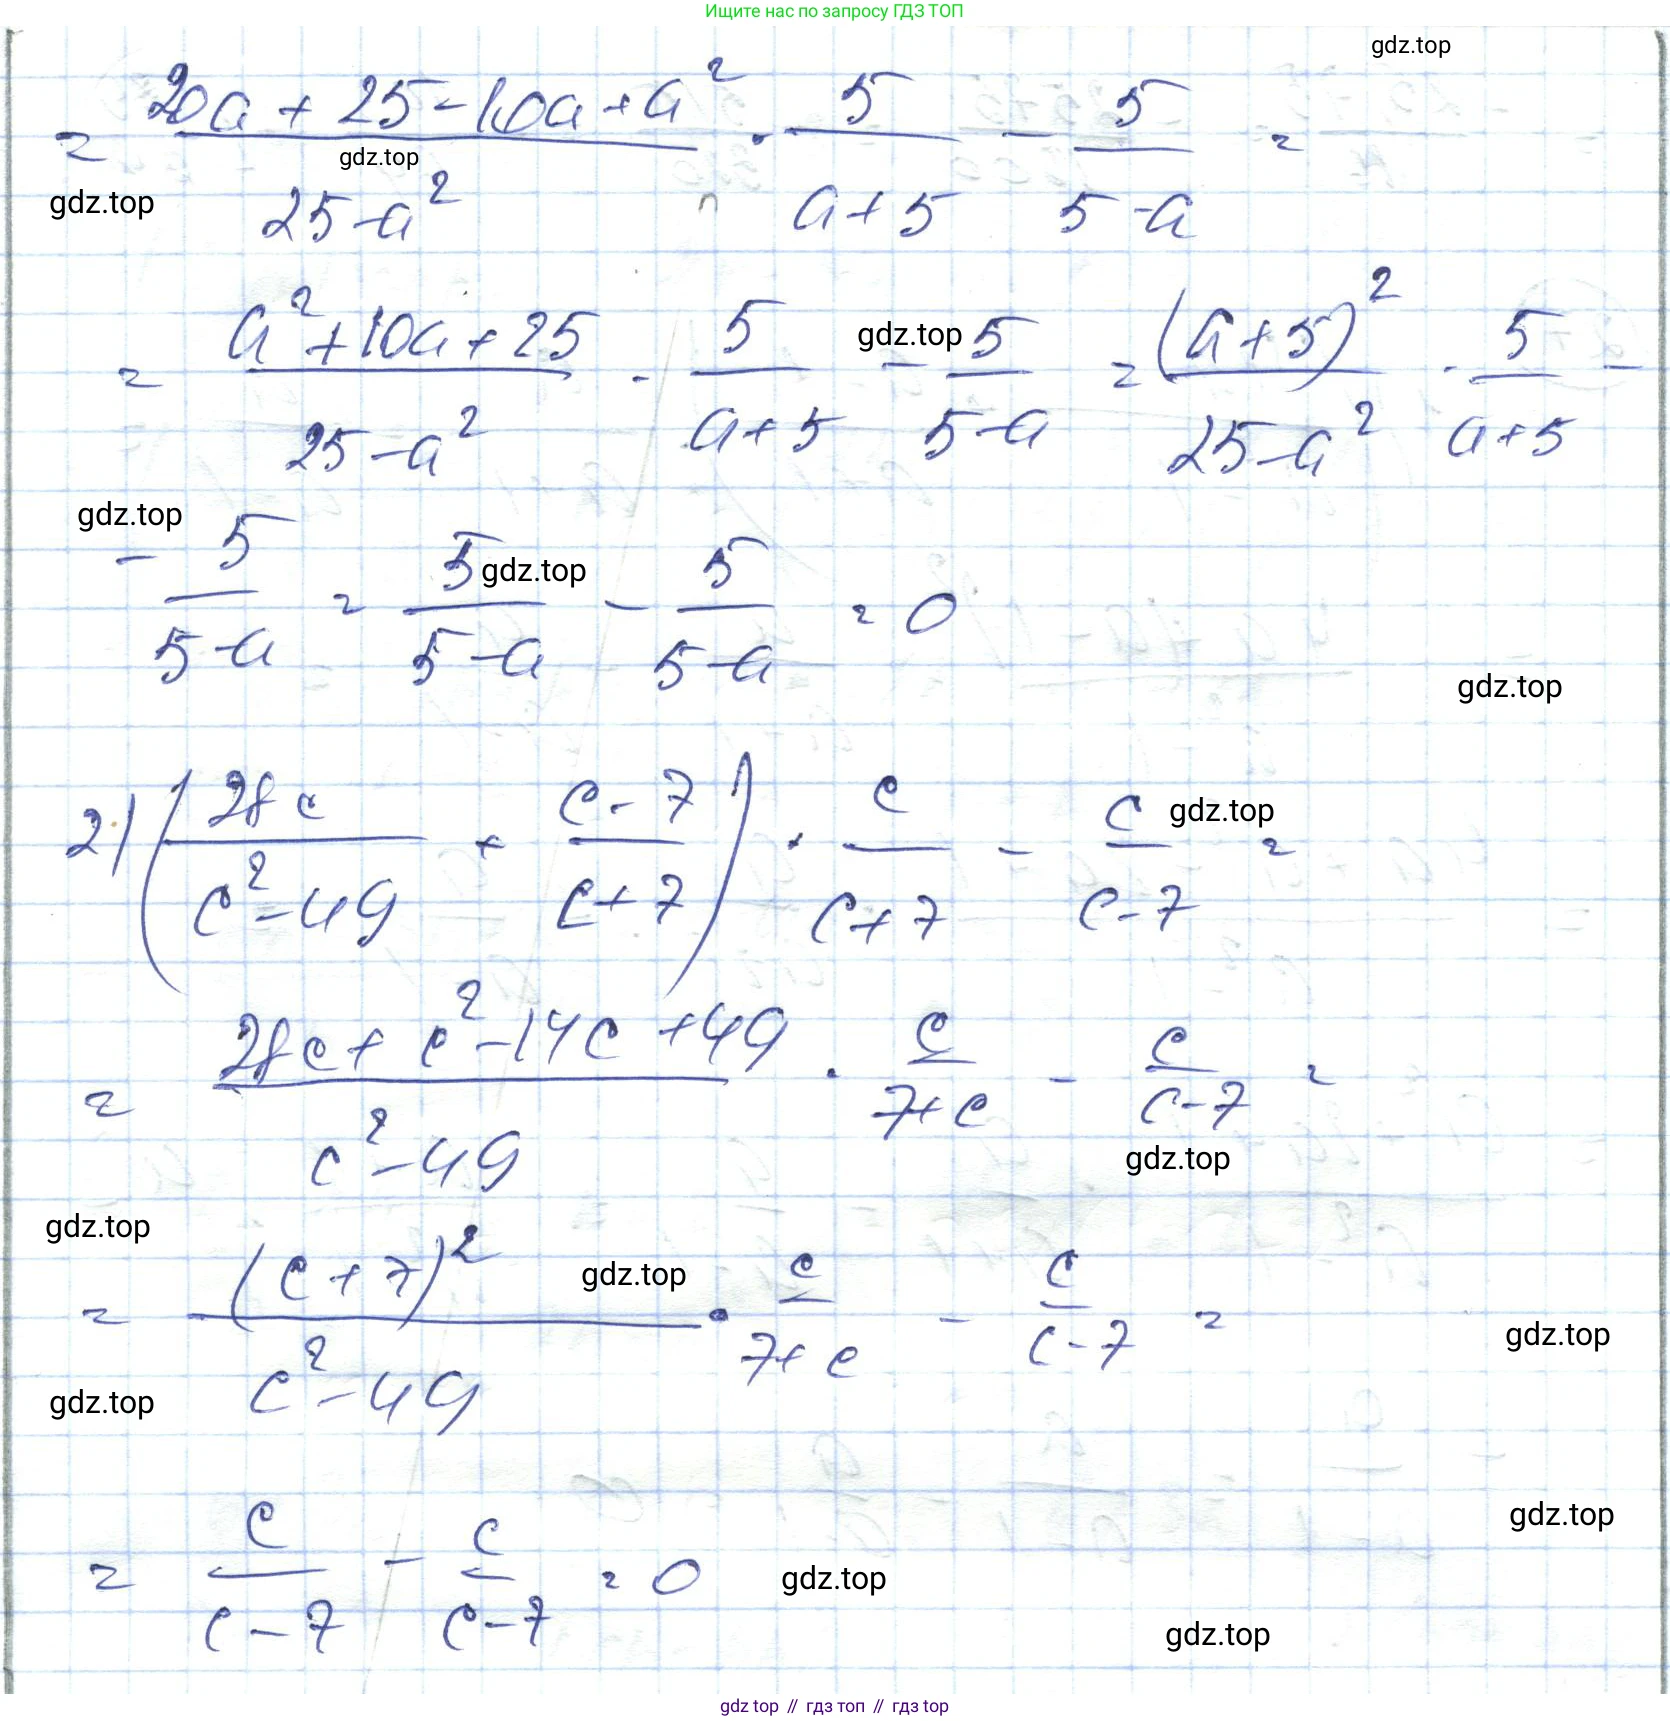 Ищите нас по запросу ГДЗ ТОП
gdz.top
= (20a + 25 - 10a + a²)/(25 - a²) · 5/(a + 5) - 5/(5 - a) =
gdz.top
gdz.top
= (a² + 10a + 25)/(25 - a²) · 5/(a + 5) - 5/(5 - a) = (a + 5)²/(25 - a²) · 5/(a + 5) -
gdz.top
gdz.top
- 5/(5 - a) = 5/(5 - a) - 5/(5 - a) = 0
gdz.top
gdz.top
2) (28c/(c² - 49) + (c - 7)/(c + 7)) · c/(c + 7) - c/(c - 7) =
gdz.top
= (28c + c² - 14c + 49)/(c² - 49) · c/(7 + c) - c/(c - 7) =
gdz.top
gdz.top
= (c + 7)²/(c² - 49) · c/(7 + c) - c/(c - 7) =
gdz.top
gdz.top
gdz.top
= c/(c - 7) - c/(c - 7) = 0
gdz.top
gdz.top
gdz.top
gdz top // гдз топ // гдз top